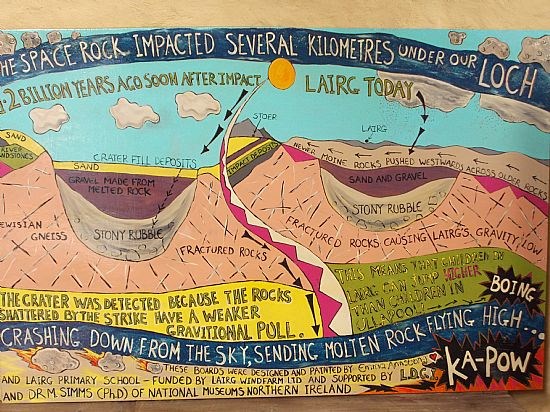 THE SPACE ROCK IMPACTED SEVERAL KILOMETRES UNDER OUR LOCH
1·2 BILLION YEARS AGO SOON AFTER IMPACT
LAIRG TODAY
STOER
LAIRG
SAND
RIVER
SANDSTONES
CRATER FILL DEPOSITS
SAND
IMPACT DEPOSIT
NEWER MOINE ROCKS PUSHED WESTWARDS ACROSS OLDER ROCKS
GRAVEL MADE FROM
MELTED ROCK
SAND AND GRAVEL
STONY RUBBLE
STONY RUBBLE
LEWISIAN
GNEISS
FRACTURED ROCKS
FRACTURED ROCKS CAUSING LAIRG'S GRAVITY LOW
THIS MEANS THAT CHILDREN IN
LAIRG CAN JUMP HIGHER
THAN CHILDREN IN
ULLAPOOL!
BOING
THE CRATER WAS DETECTED BECAUSE THE ROCKS
SHATTERED BY THE STRIKE HAVE A WEAKER
GRAVITIONAL PULL.
CRASHING DOWN FROM THE SKY, SENDING MOLTEN ROCK FLYING HIGH...
KA-POW
THESE BOARDS WERE DESIGNED AND PAINTED BY Emma Armstrong
AND LAIRG PRIMARY SCHOOL - FUNDED BY LAIRG WINDFARM LTD AND SUPPORTED BY L.D.C.
AND DR M. SIMMS (PhD) OF NATIONAL MUSEUMS NORTHERN IRELAND